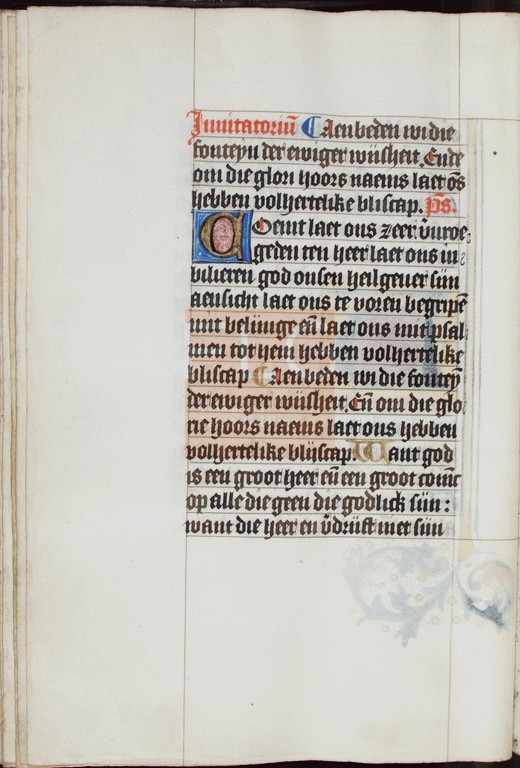 Inuitatoriū Aenbeden wi die
fonteyn der ewiger wijsheit. Ende
om die glori hoors naems laet ōs
hebben volhertelike bliscap. ps̄.
Coemt laet ons zeer v̄uroe
geden ten heer laet ons iu
bilieren god onsen heilgeuer sijn
aensicht laet ons te voren begripē
mit belijinge eñ laet ons mit psal
men tot hem hebben volhertelike
bliscap Aenbeden wi die fonteȳ
der ewiger wijsheit. Eñ om die glo
rie hoors naems laet ons hebben
volhertelike blijscap. Want god
is een groot heer eñ een groot coninc
op alle die geen die godlick sijn :
want die heer en v̄drijft niet sijn